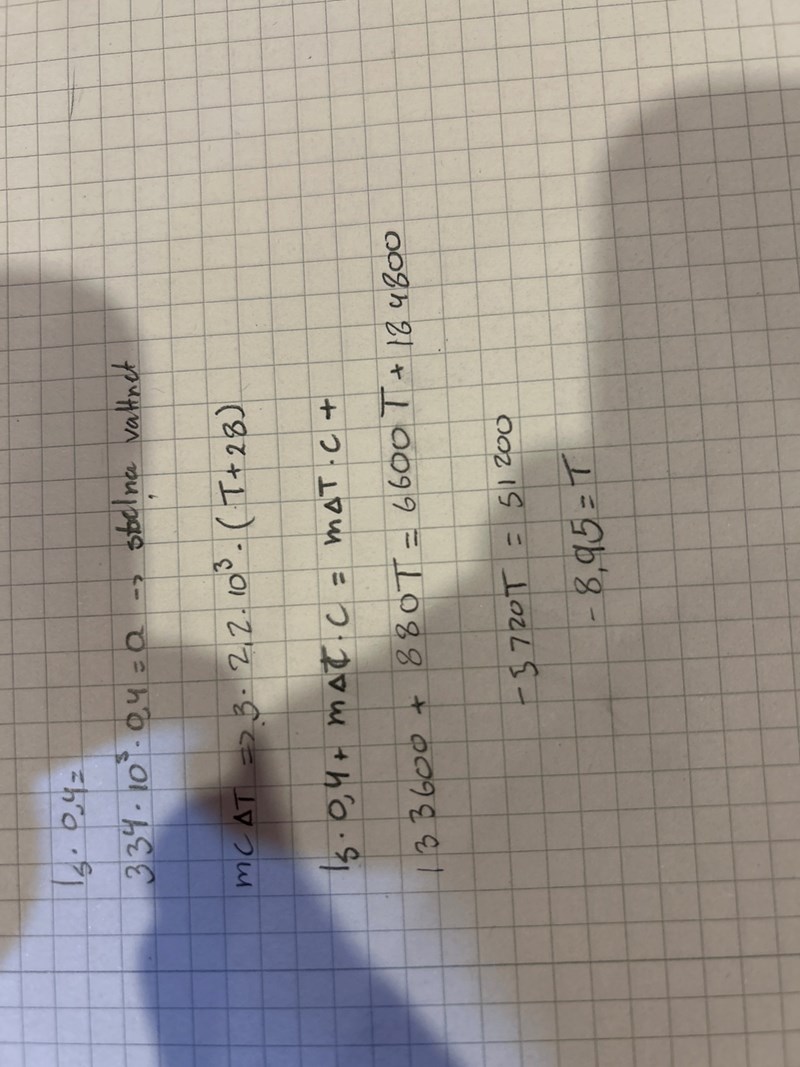 ls · 0,4 =
334 · 10³ · 0,4 = Q → stelna vattnet
mcΔT => 3 · 2,2 · 10³ · (T+28)
ls · 0,4 + mΔT · C = mΔT · C +
133600 + 880T = 6600T + 184800
-5720T = 51200
-8,95 = T